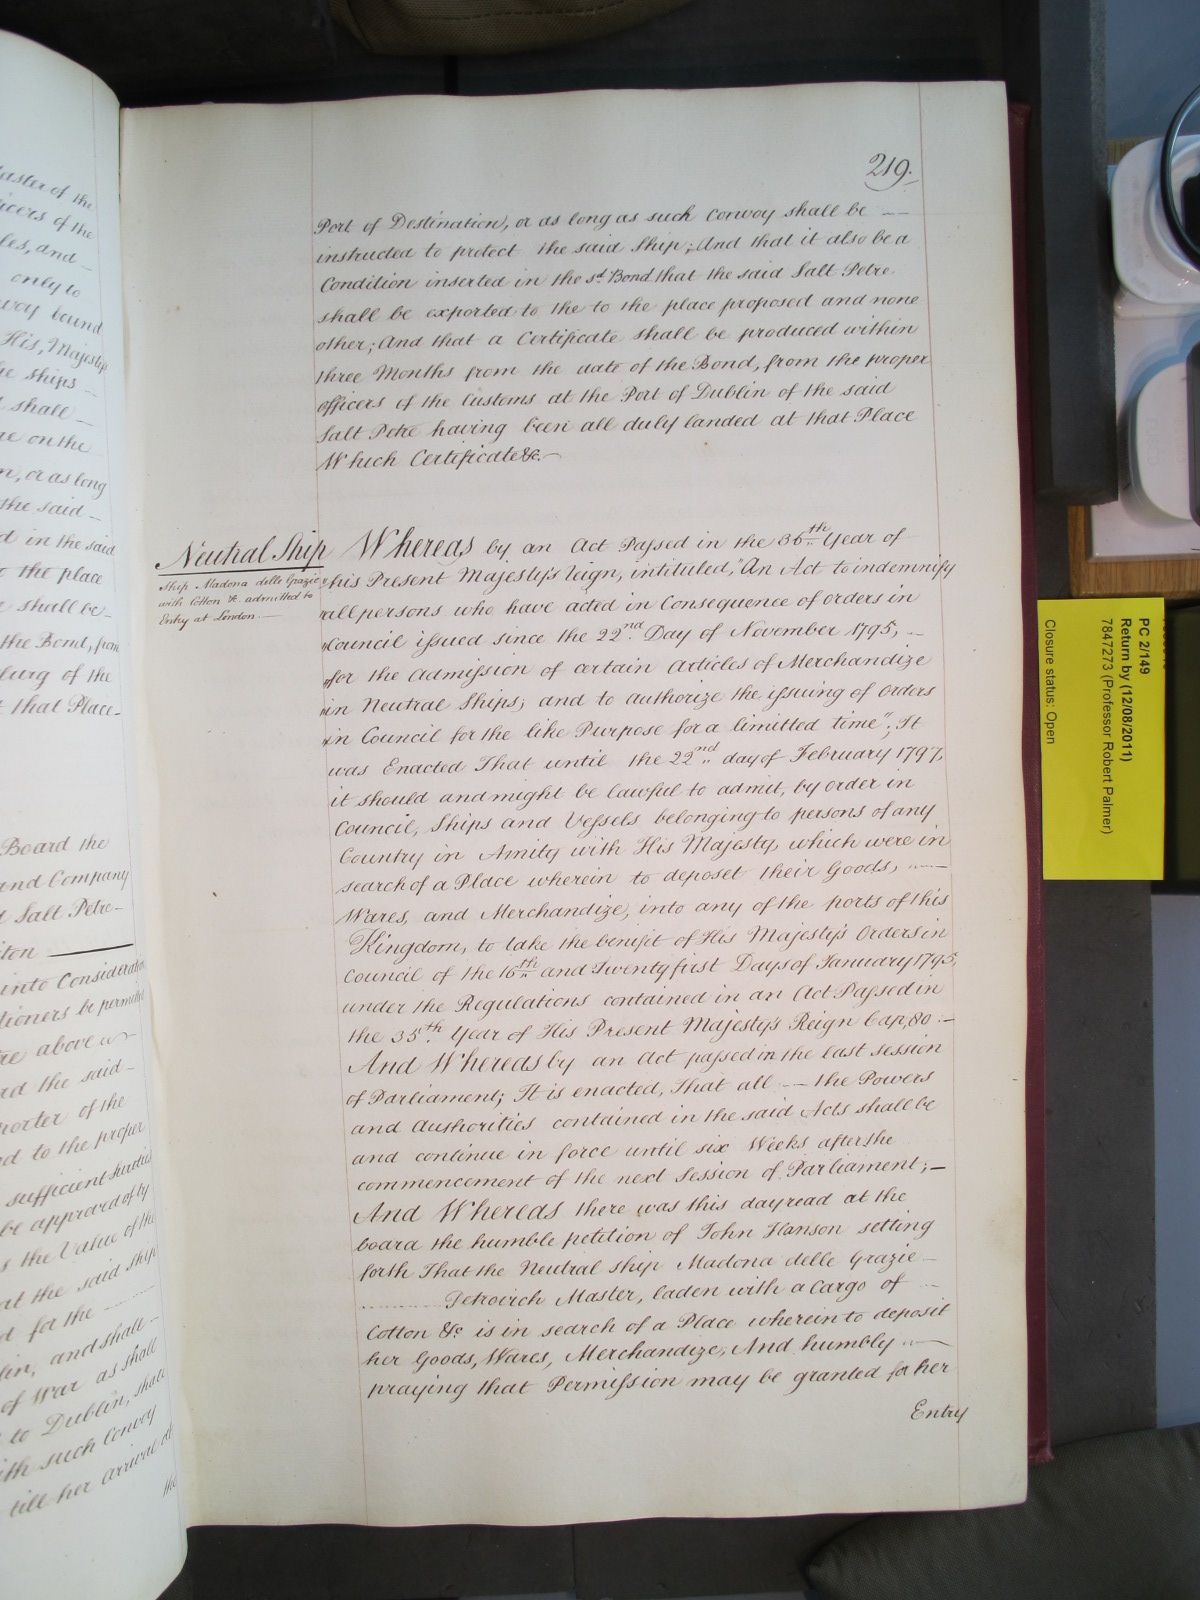 aster of the
icers of the
les, and
only to
voy bound
His, Majestys
he ships
shall
re on the
n, or as long
the said
d in the said
the place
shall be
the Bond, from
burg of the
that Place
Board the
and Company
Salt Petre
ton
into Consideration
tioners be permitted
re above
rd the said
porter of the
d to the proper
sufficient
be approved of by
s the Value of the
at the said ship
d for the
lin, and shall
of War as shall
to Dublin, shall
ith such Convoy
till her arrival at
the
219.
Port of Destination, or as long as such Convoy shall be
instructed to protect the said Ship; And that it also be a
Condition inserted in the sd. Bond that the said Salt Petre
shall be exported to the to the place proposed and none
other; And that a Certificate shall be produced within
three Months from the date of the Bond, from the proper
officers of the Customs at the Port of Dublin of the said
Salt Petre having been all duly landed at that Place
Which Certificate &c.
Neutral Ship
Ship Madona delle Grazie
with Cotton &c. admitted to
Entry at London.
Whereas by an Act Passed in the 36th. Year of
"his Present Majesty's Reign, intituled, "An Act to indemnify
"all persons who have acted in Consequence of orders in
"Council issued since the 22nd. Day of November 1795,
"for the Admission of certain Articles of Merchandize
"in Neutral Ships; and to authorize the issuing of Orders
"in Council for the like Purpose for a limitted time"; It
was Enacted That until the 22nd. day of February 1797,
it should and might be lawful to admit, by order in
Council, Ships and Vessels belonging to persons of any
Country in Amity with His Majesty, which were in
search of a Place wherein to deposet their Goods,
Wares, and Merchandize, into any of the ports of this
Kingdom, to take the benefit of His Majesty's Orders in
Council of the 16th. and Twenty first Days of January 1795,
under the Regulations contained in an Act Passed in
the 35th. Year of His Present Majesty's Reign Cap, 80.
And Whereas by an Act passed in the last session
of Parliament; It is enacted, That all the Powers
and Authorities contained in the said Acts shall be
and continue in force until six Weeks after the
commencement of the next Session of Parliament;
And Whereas there was this day read at the
board the humble petition of John Hanson setting
forth That the Neutral ship Madona delle Grazie
Petroirch Master, laden with a Cargo of
Cotton &c is in search of a Place wherein to deposit
her Goods, Wares, Merchandize, And humbly
praying that Permission may be granted for her
Entry
PC 2/149
Return by (12/08/2011)
7847273 (Professor Robert Palmer)
Closure status: Open